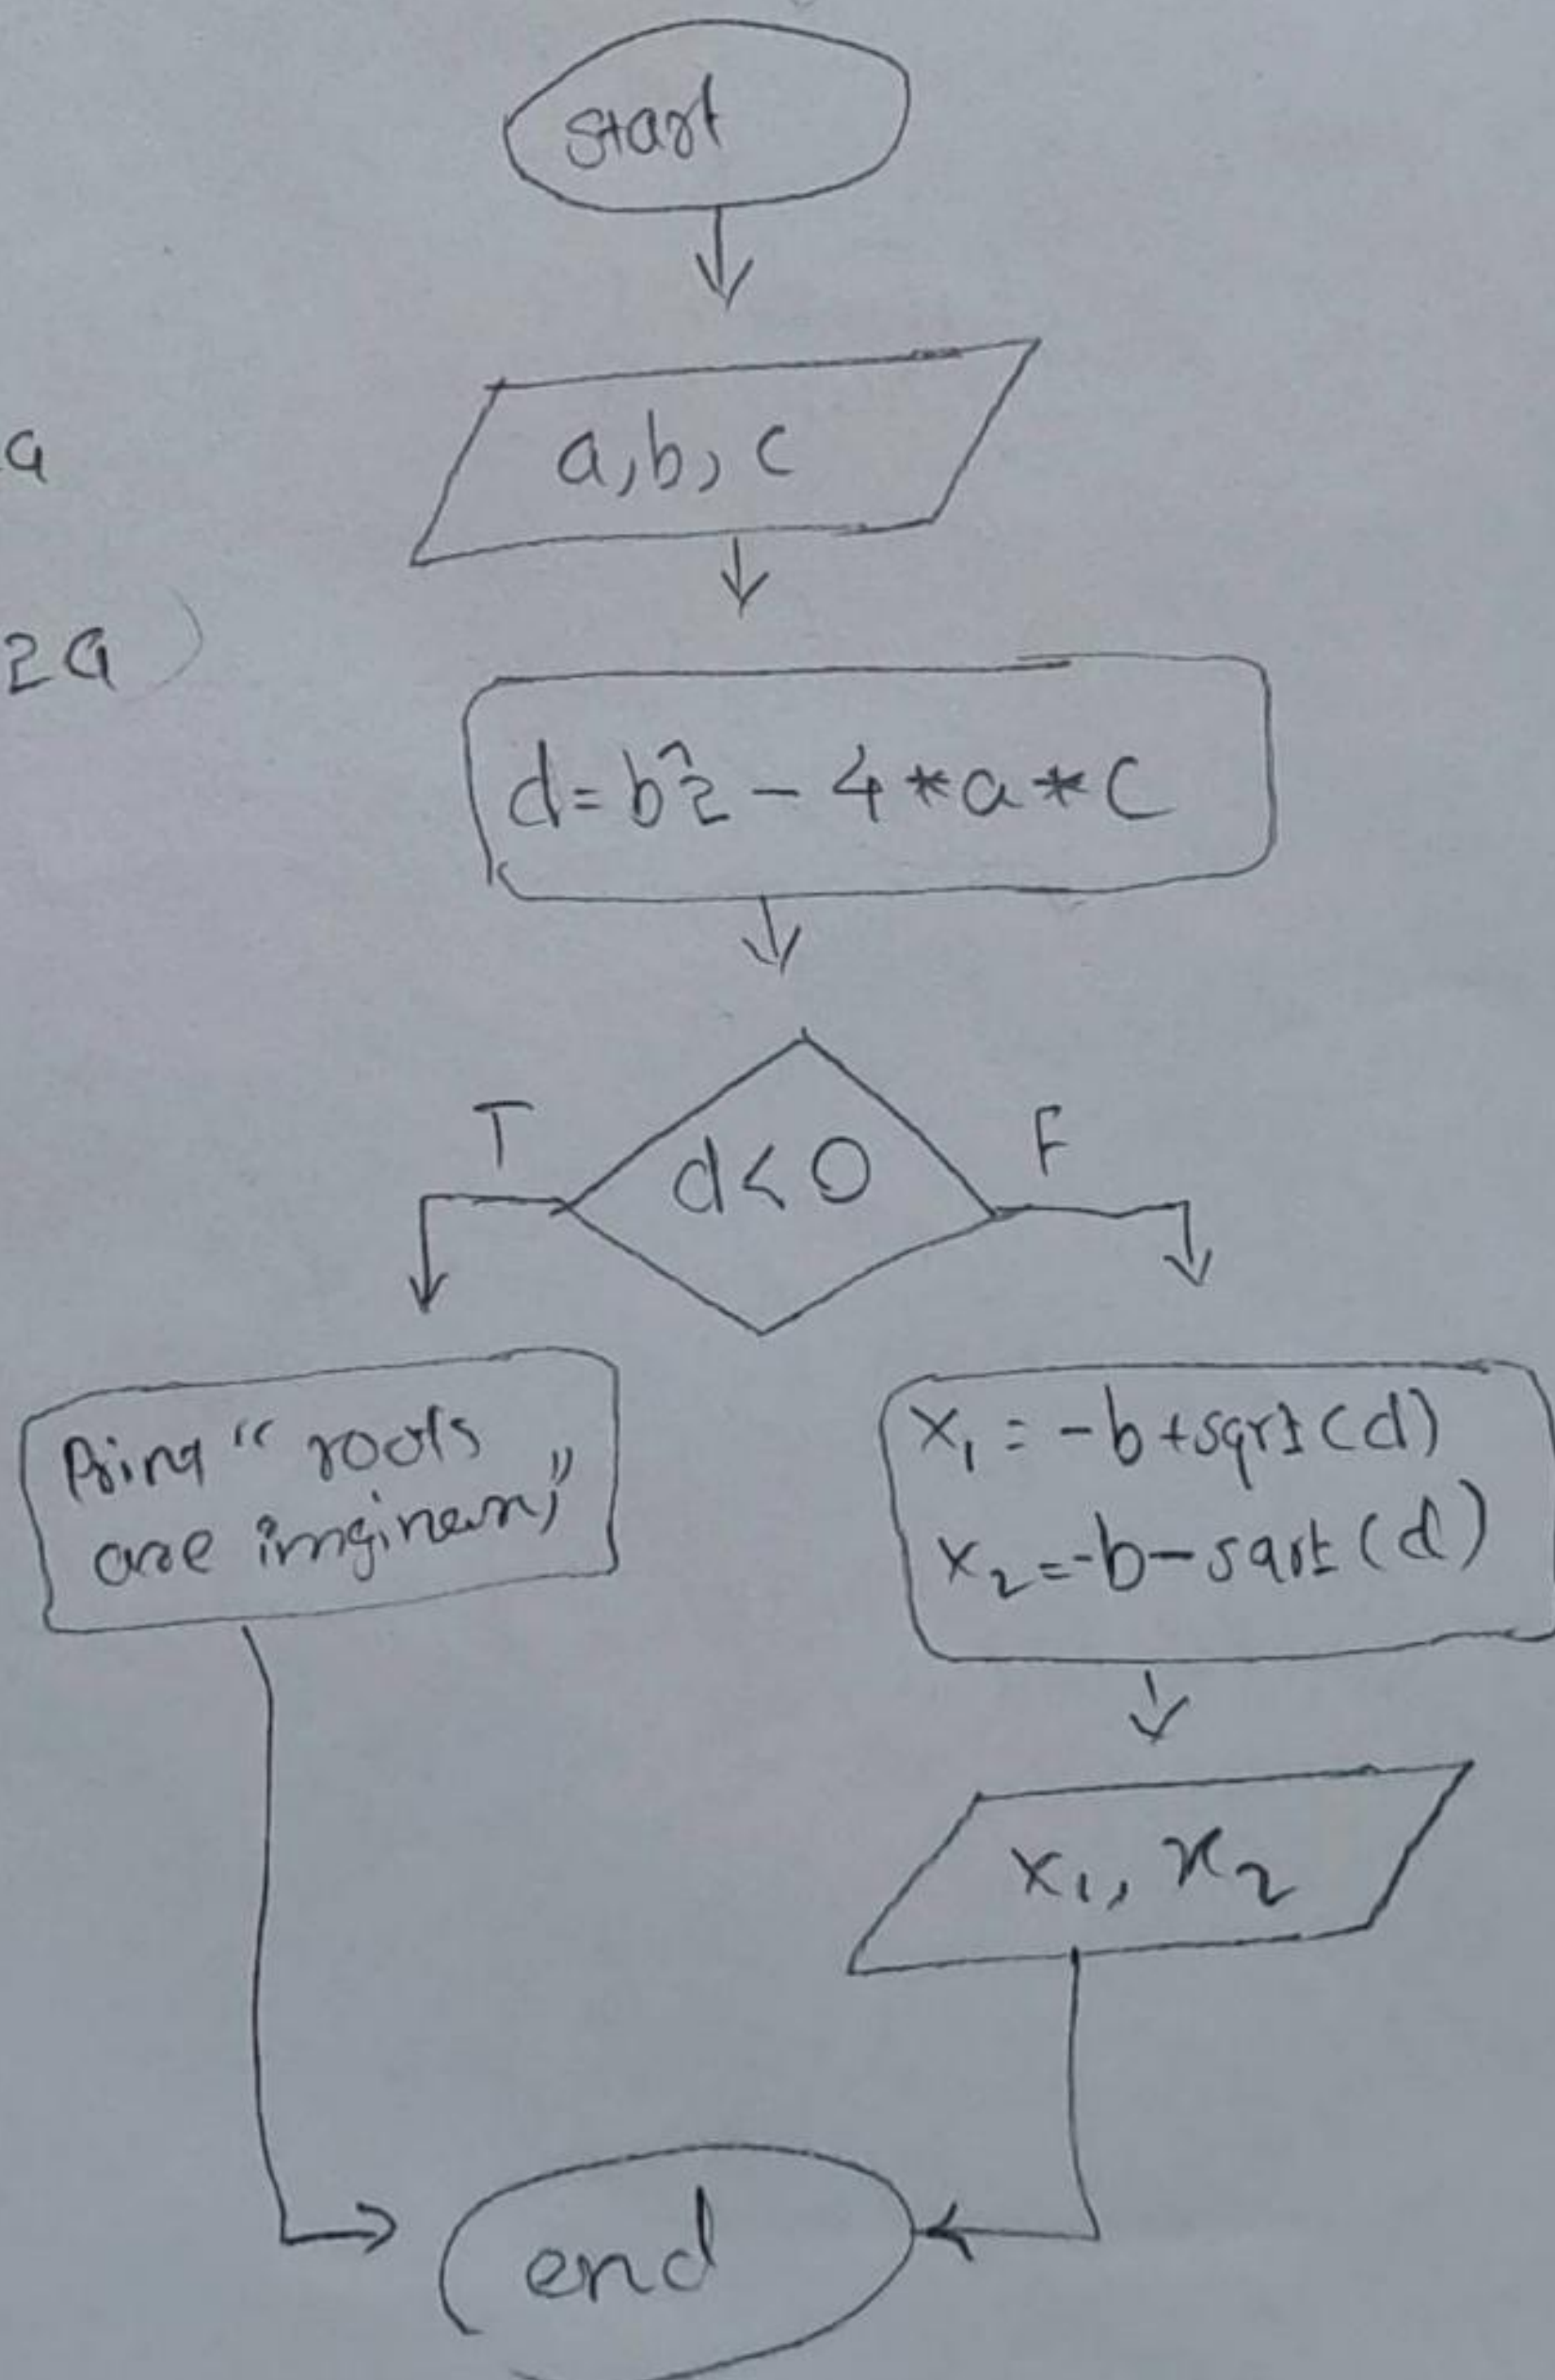 start
a
a, b, c
2a)
d = b^2 - 4 * a * c
T
F
d < 0
Print " roots
are imginery"
x₁ = -b + sqrt(d)
x₂ = -b - sqrt(d)
x₁, x₂
end